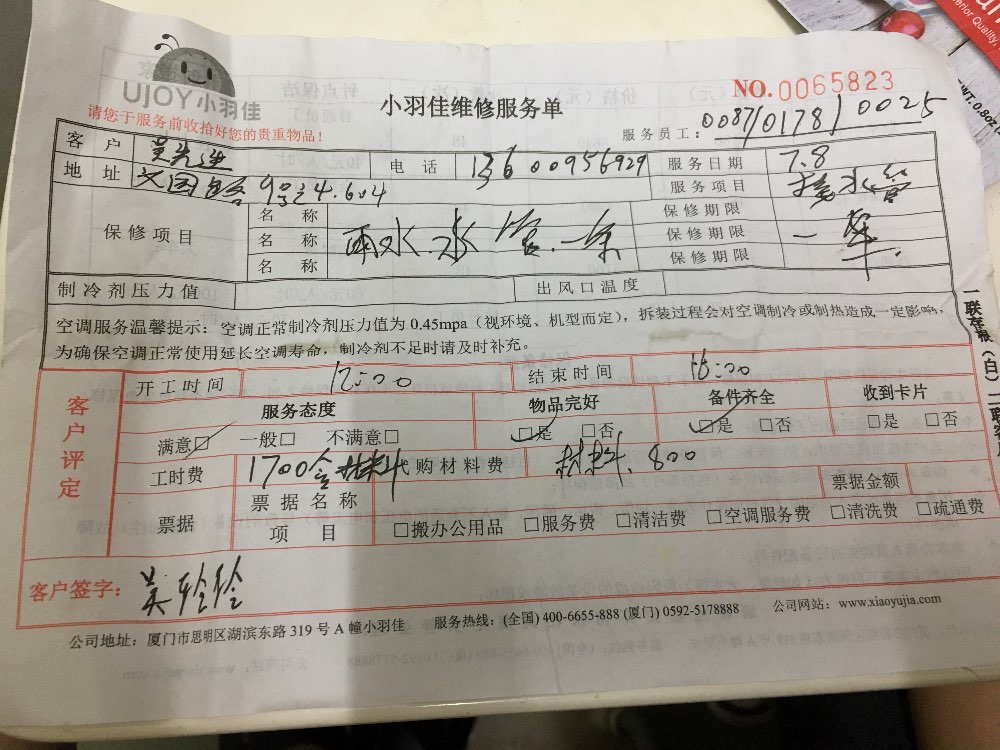 UJOY小羽佳
请您于服务前收拾好您的贵重物品！
小羽佳维修服务单
NO.0065823
服务员工：0087/0178/0025
客户 吴先生 电话 13600956929 服务日期 7.8
地址 文园路9号之4.604 服务项目 接水管
保修项目 名称 保修期限
名称 雨水.水管.一条 保修期限 一年.
名称 保修期限
制冷剂压力值 出风口温度
空调服务温馨提示：空调正常制冷剂压力值为0.45mpa（视环境、机型而定），拆装过程会对空调制冷或制热造成一定影响，
为确保空调正常使用延长空调寿命，制冷剂不足时请及时补充。
客户评定
开工时间 12:00 结束时间 16:00
服务态度 物品完好 备件齐全 收到卡片
满意□ 一般□ 不满意□ □是 □否 □是 □否 □是 □否
工时费 1700含材料 代购材料费 材料.800
票据 票据名称 票据金额
项目 □搬办公用品 □服务费 □清洁费 □空调服务费 □清洗费 □疏通费
客户签字：吴玲玲
公司地址：厦门市思明区湖滨东路319号A幢小羽佳 服务热线：(全国) 400-6655-888 (厦门) 0592-5178888 公司网站：www.xiaoyujia.com
一联存根（白）二联客